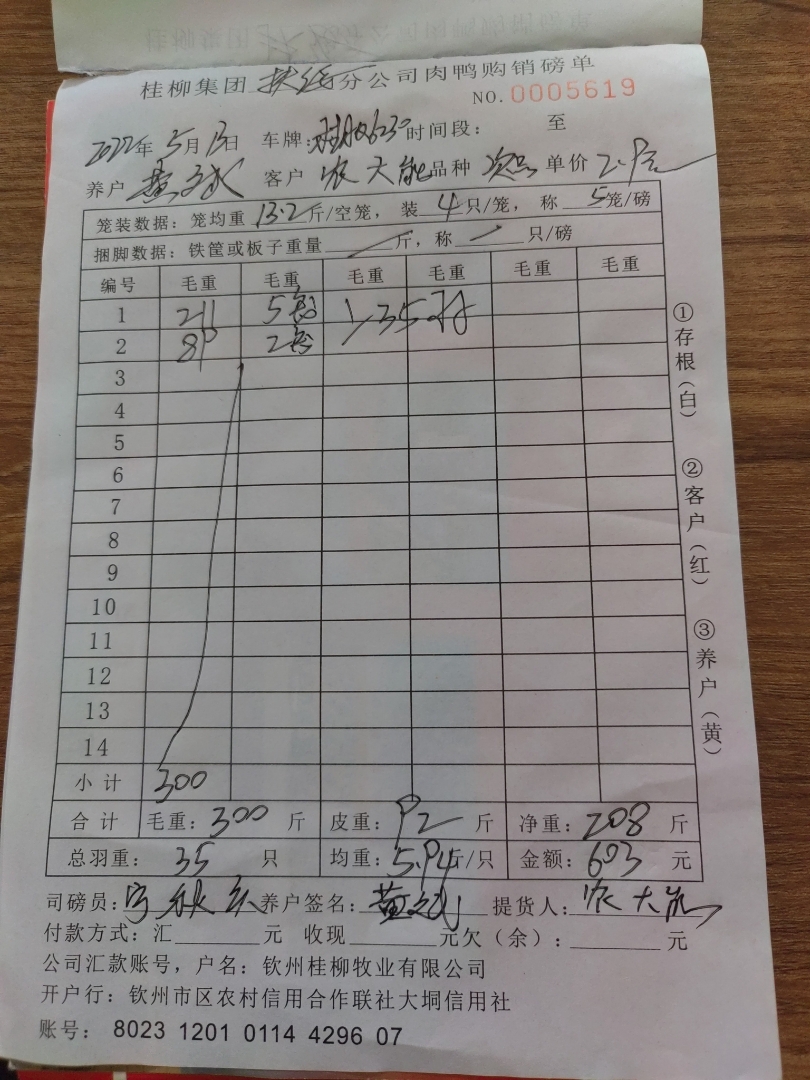 桂柳集团 扶绥 分公司肉鸭购销磅单
NO. 0005619
2022年 5月 13日 车牌: 时间段: 至
养户 黄 客户 农大能 品种 次品 单价 2.9
笼装数据: 笼均重 13.2 斤/空笼, 装 4 只/笼, 称 5 笼/磅
捆脚数据: 铁筐或板子重量 斤, 称 只/磅
编号 毛重 毛重 毛重 毛重 毛重 毛重
1 211 5笼 35只
2 89 2笼
3
4
5
6
7
8
9
10
11
12
13
14
小计 300
合计 毛重: 300 斤 皮重: 92 斤 净重: 208 斤
总羽重: 35 只 均重: 5.94 斤/只 金额: 603 元
司磅员: 养户签名: 黄 提货人: 农大能
付款方式: 汇 元 收现 元欠(余): 元
公司汇款账号, 户名: 钦州桂柳牧业有限公司
开户行: 钦州市区农村信用合作联社大垌信用社
账号: 8023 1201 0114 4296 07
①存根(白)
②客户(红)
③养户(黄)